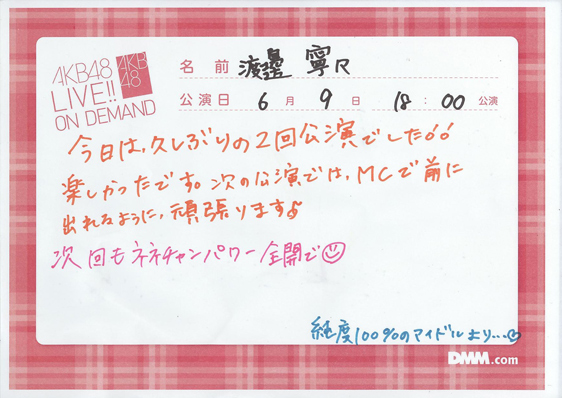 AKB48
LIVE!!
ON DEMAND
AKB
48
名前 渡邊 寧々
公演日 6月 9日 18:00 公演
今日は、久しぶりの2回公演でした!!
楽しかったです。次の公演では、MCで前に
出れるように、頑張ります♪
次回もネネチャンパワー全開で
経度100%のアイドルより…♡
DMM.com